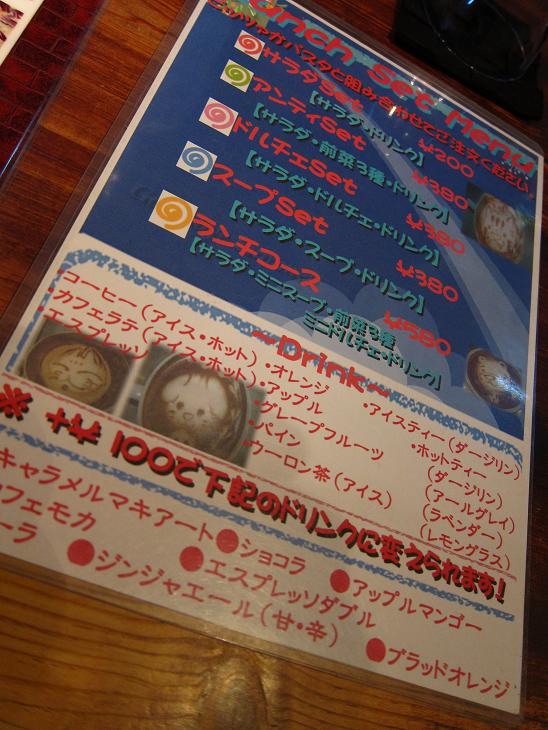 unch Set Menu
パスタと組み合わせてご注文ください
サラダSet ¥200
【サラダ・ドリンク】
アンティSet ¥380
【サラダ・前菜3種・ドリンク】
ドルチェSet ¥380
【サラダ・ドルチェ・ドリンク】
スープSet ¥380
【サラダ・スープ・ドリンク】
ランチコース ¥580
【サラダ・ミニスープ・前菜3種
ミニドルチェ・ドリンク】
~Drink~
・コーヒー(アイス・ホット)
・カフェラテ(アイス・ホット)
・エスプレッソ
・オレンジ
・アップル
・グレープフルーツ
・パイン
・ウーロン茶(アイス)
・アイスティー(ダージリン)
・ホットティー
(ダージリン)
(アールグレイ)
(ラベンダー)
(レモングラス)
※ +¥100で下記のドリンクに変えられます!
キャラメルマキアート ●ショコラ ●アップルマンゴー
フェモカ ●エスプレッソダブル ●ブラッドオレンジ
ーラ ●ジンジャエール(甘・辛)